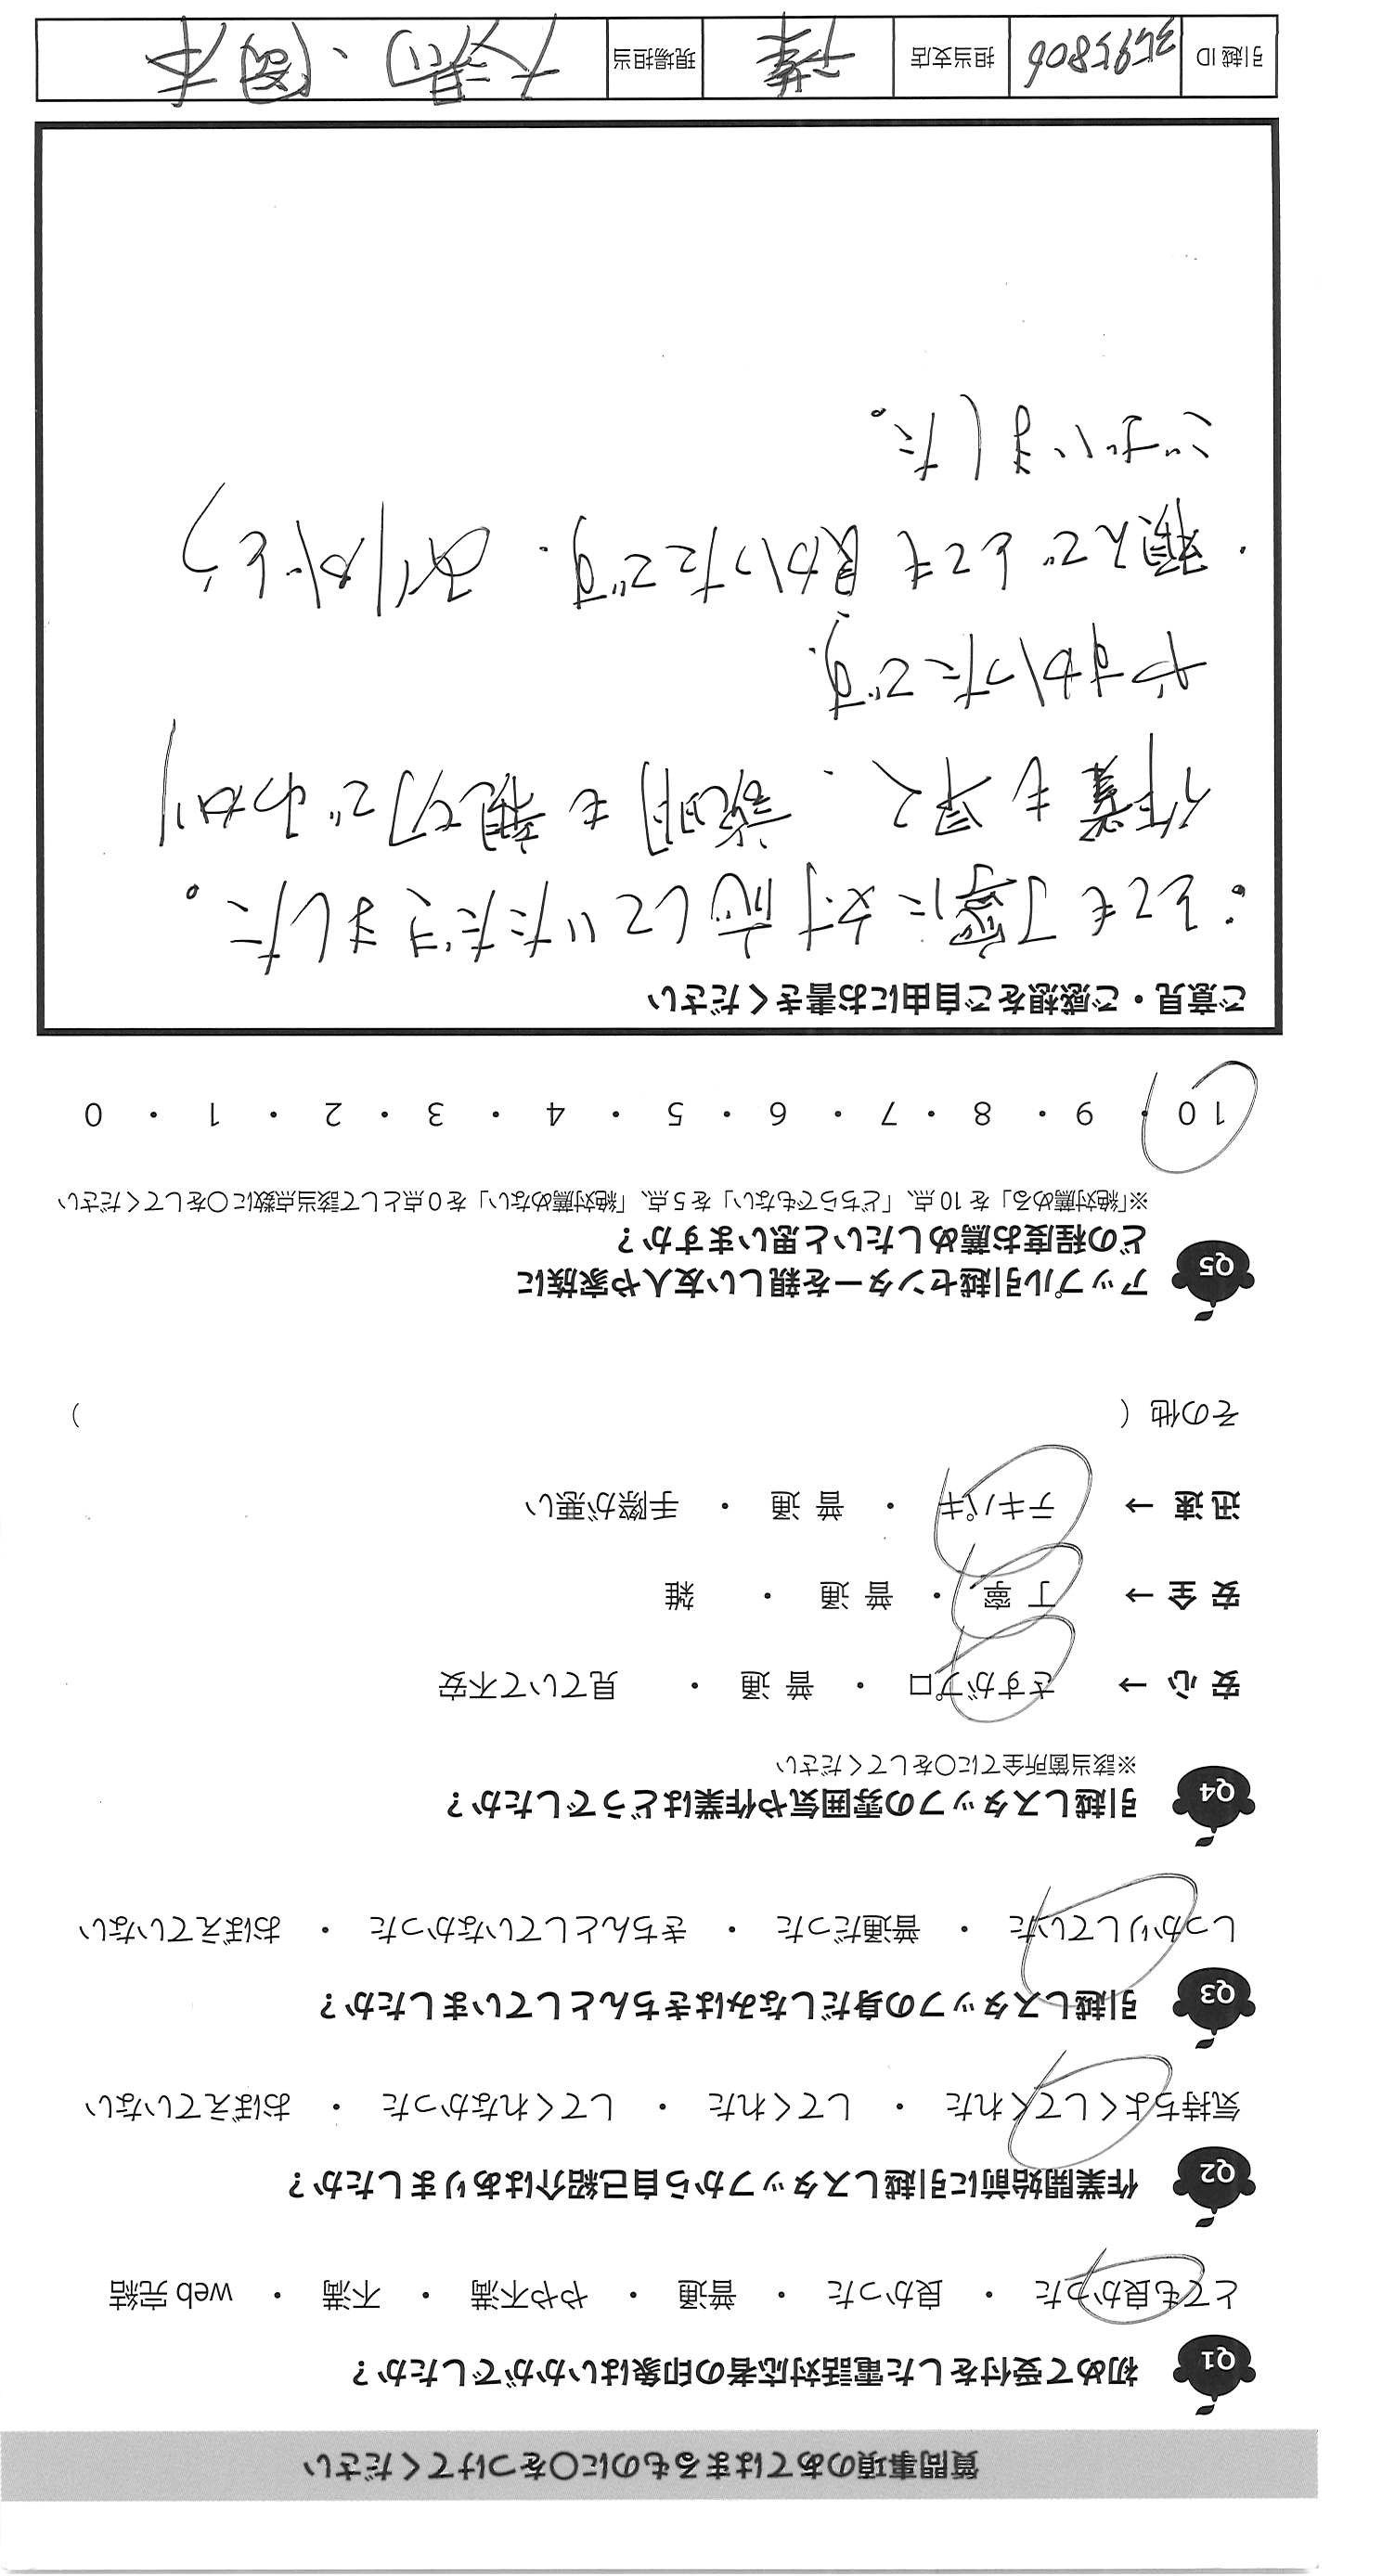 質問事項のあてはまるものに〇をつけてください
Q1 初めて受付をした電話対応者の印象はいかがでしたか？
とても良かった ・ 良かった ・ 普通 ・ やや不満 ・ 不満 ・ web 完結
Q2 作業開始前に引越しスタッフから自己紹介はありましたか？
気持ちよくしてくれた ・ してくれた ・ してくれなかった ・ おぼえていない
Q3 引越しスタッフの身だしなみはきちんとしていましたか？
しっかりしていた ・ 普通だった ・ きちんとしていなかった ・ おぼえていない
Q4 引越しスタッフの雰囲気や作業はどうでしたか？
※該当箇所全てに〇をしてください
安 心 → さすがプロ ・ 普 通 ・ 見ていて不安
安 全 → 丁 寧 ・ 普 通 ・ 雑
迅 速 → テキパキ ・ 普 通 ・ 手際が悪い
その他 ( )
Q5 アップル引越センターを親しい友人や家族に
どの程度お薦めしたいと思いますか？
※「絶対薦める」を 10 点、「どちらでもない」を 5 点、「絶対薦めない」を 0 点として該当点数に〇をしてください
10 ・ 9 ・ 8 ・ 7 ・ 6 ・ 5 ・ 4 ・ 3 ・ 2 ・ 1 ・ 0
ご意見・ご感想をご自由にお書きください
・とても丁寧に対応していただきました。
作業も早く、説明も親切でわかり
やすかったです。
・頼んでとても良かったです。ありがとう
ございました。
引越 ID 3695806 担当支店 現場担当